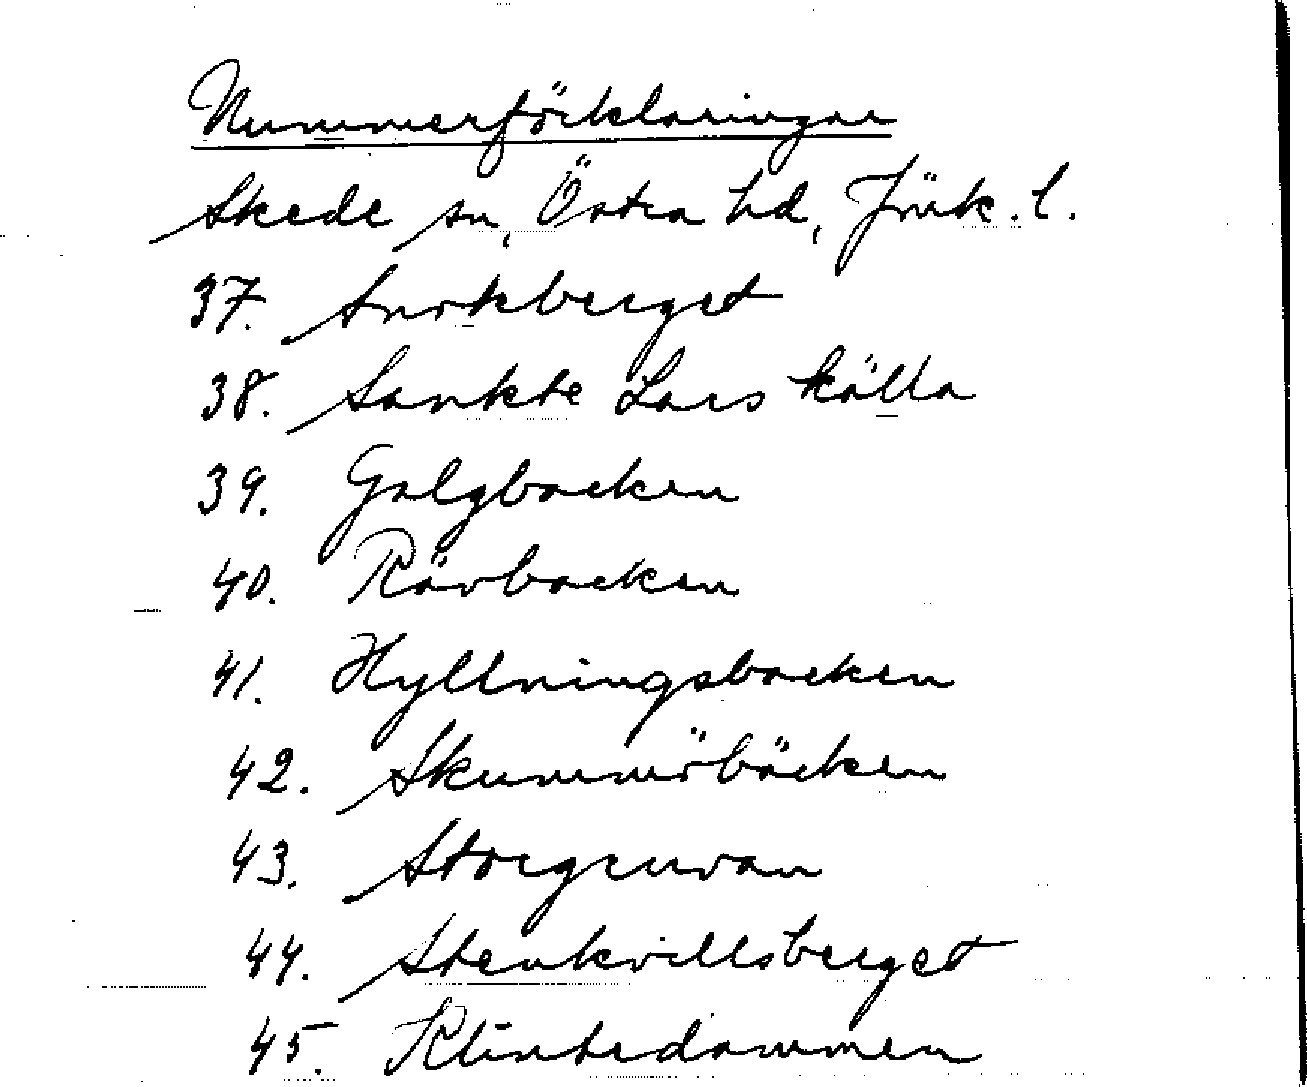 Nummerförklaringar
Skede sn, Östra hd, Jönk. l.
37. Snokberget
38. Sankte Lars källa
39. Galgbacken
40. Rävbacken
41. Hyllningsbacken
42. Skummöbäcken
43. Storgruvan
44. Stenkvillsberget
45. Klintedammen